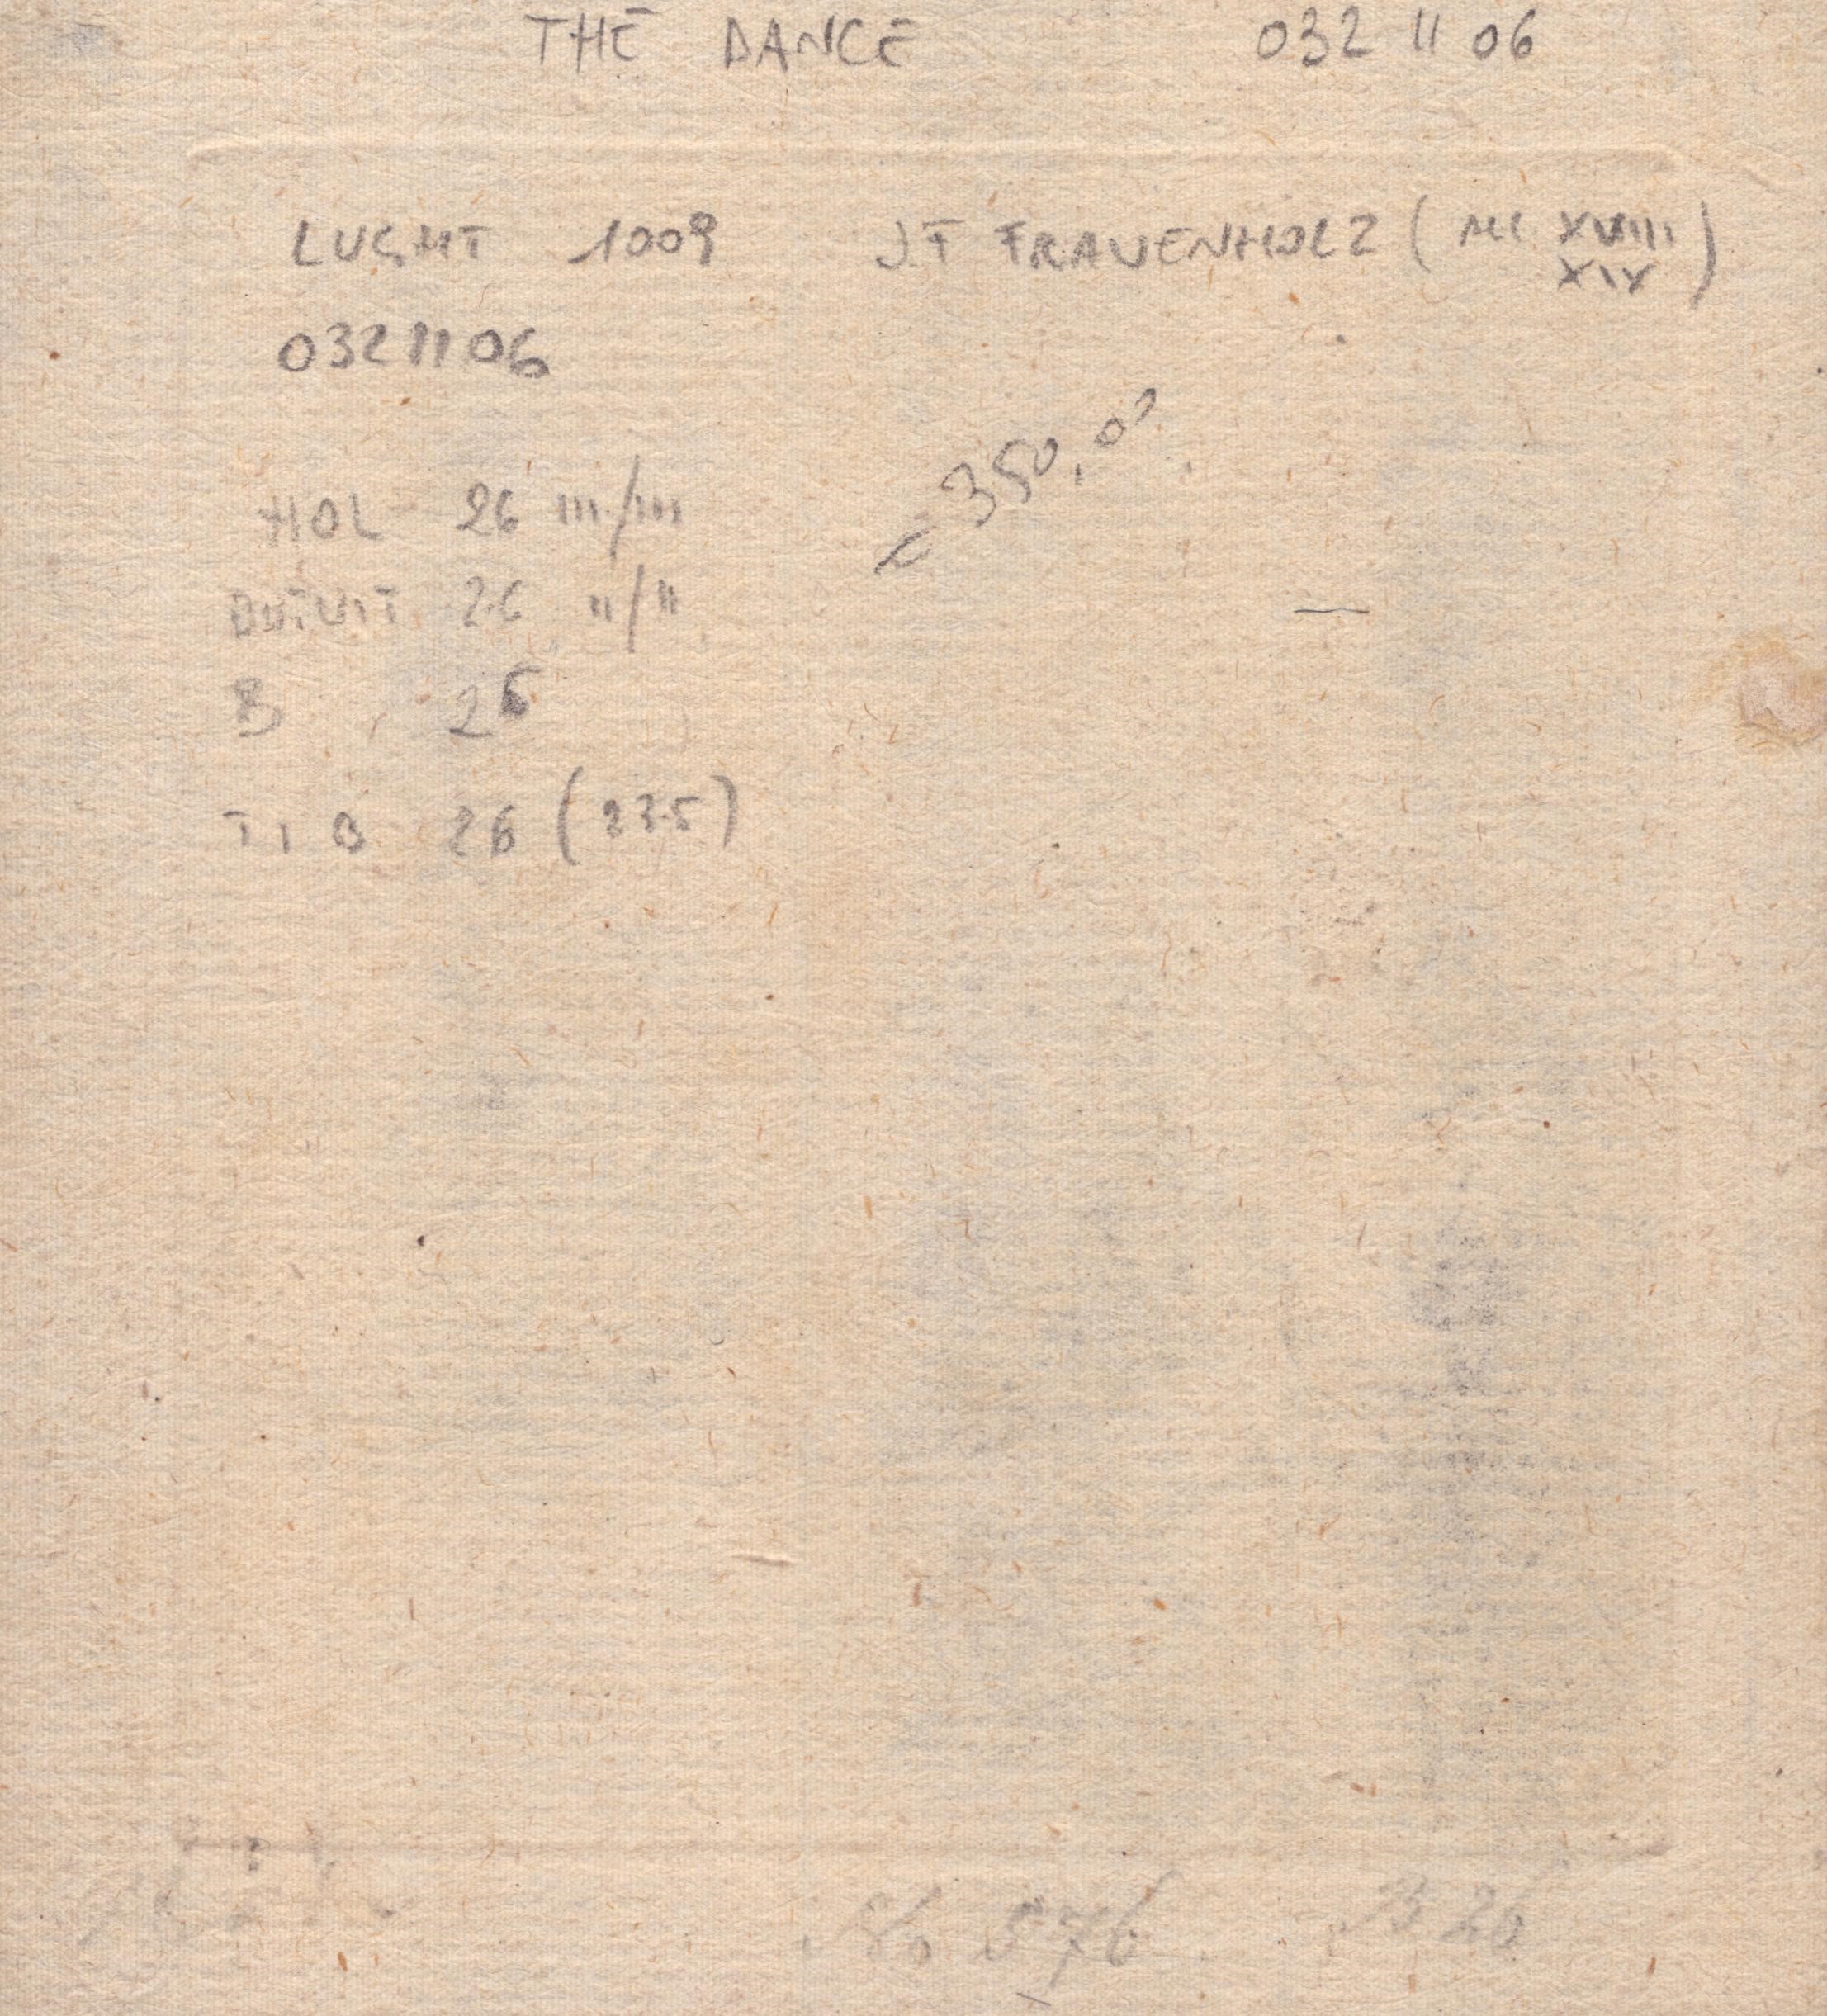 THE DANCE 032 11 06
LUGHT 1009 J.F FRAUENHOLZ ( XVIII
XIX )
0321106
= 350,00
HOL 26 III/III
DUTUIT 26 "/"
B 26
T I B 26 (235)
No 576 B 26